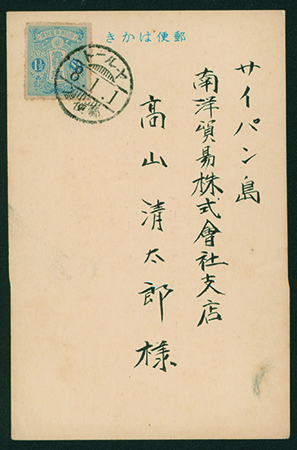 郵便はかき
サイパン島
南洋貿易株式會社支店
高山清太郎様
1½
8.1.1